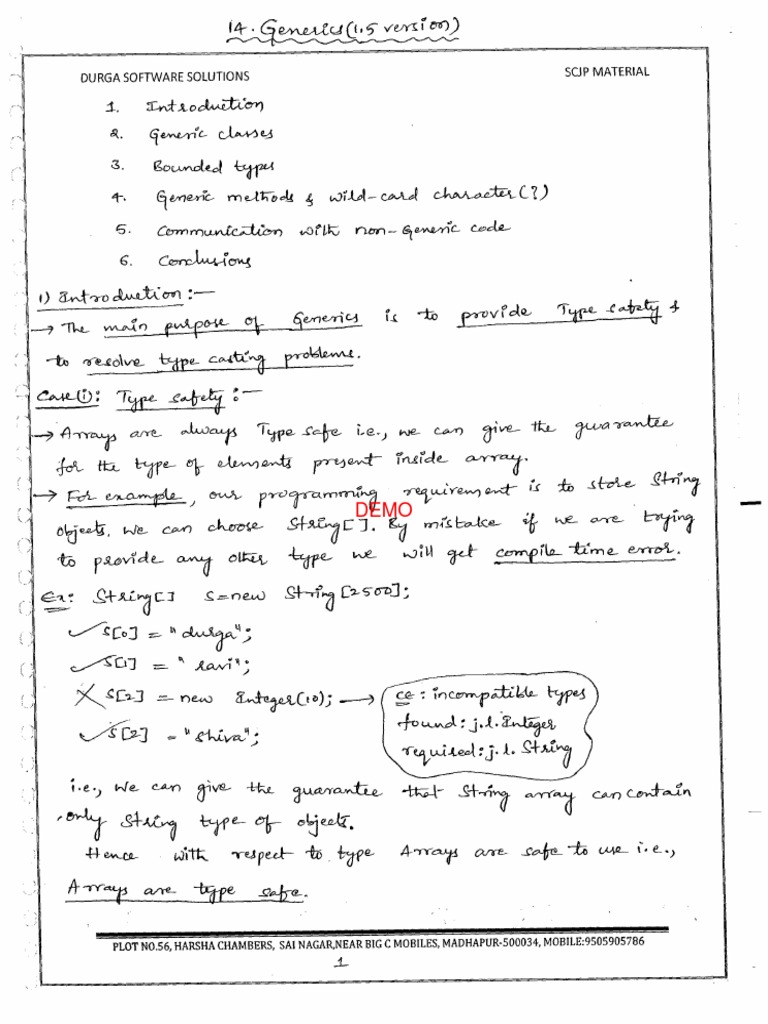 14. Generics(1.5 version)
DURGA SOFTWARE SOLUTIONS SCJP MATERIAL
1. Introduction
2. Generic classes
3. Bounded types
4. Generic methods & wild-card character(?)
5. Communication with non-Generic code
6. Conclusions
1) Introduction:—
→ The main purpose of Generics is to provide Type safety &
to resolve type casting problems.
Case(i): Type safety:—
→ Arrays are always Type safe i.e., we can give the guarantee
for the type of elements present inside array.
→ For example, our programming requirement is to store String
DEMO
objects, we can choose String[]. By mistake if we are trying
to provide any other type we will get compile time error.
Ex: String[] s=new String[2500];
✓ s[0] = "durga";
✓ s[1] = "ravi";
✗ s[2] = new Integer(10); → ce: incompatible types
found: j.l.Integer
✓ s[2] = "shiva";
required: j.l.String
i.e., we can give the guarantee that String array can contain
only String type of objects.
Hence with respect to type Arrays are safe to use i.e.,
Arrays are type safe.
PLOT NO.56, HARSHA CHAMBERS, SAI NAGAR,NEAR BIG C MOBILES, MADHAPUR-500034, MOBILE:9505905786
1